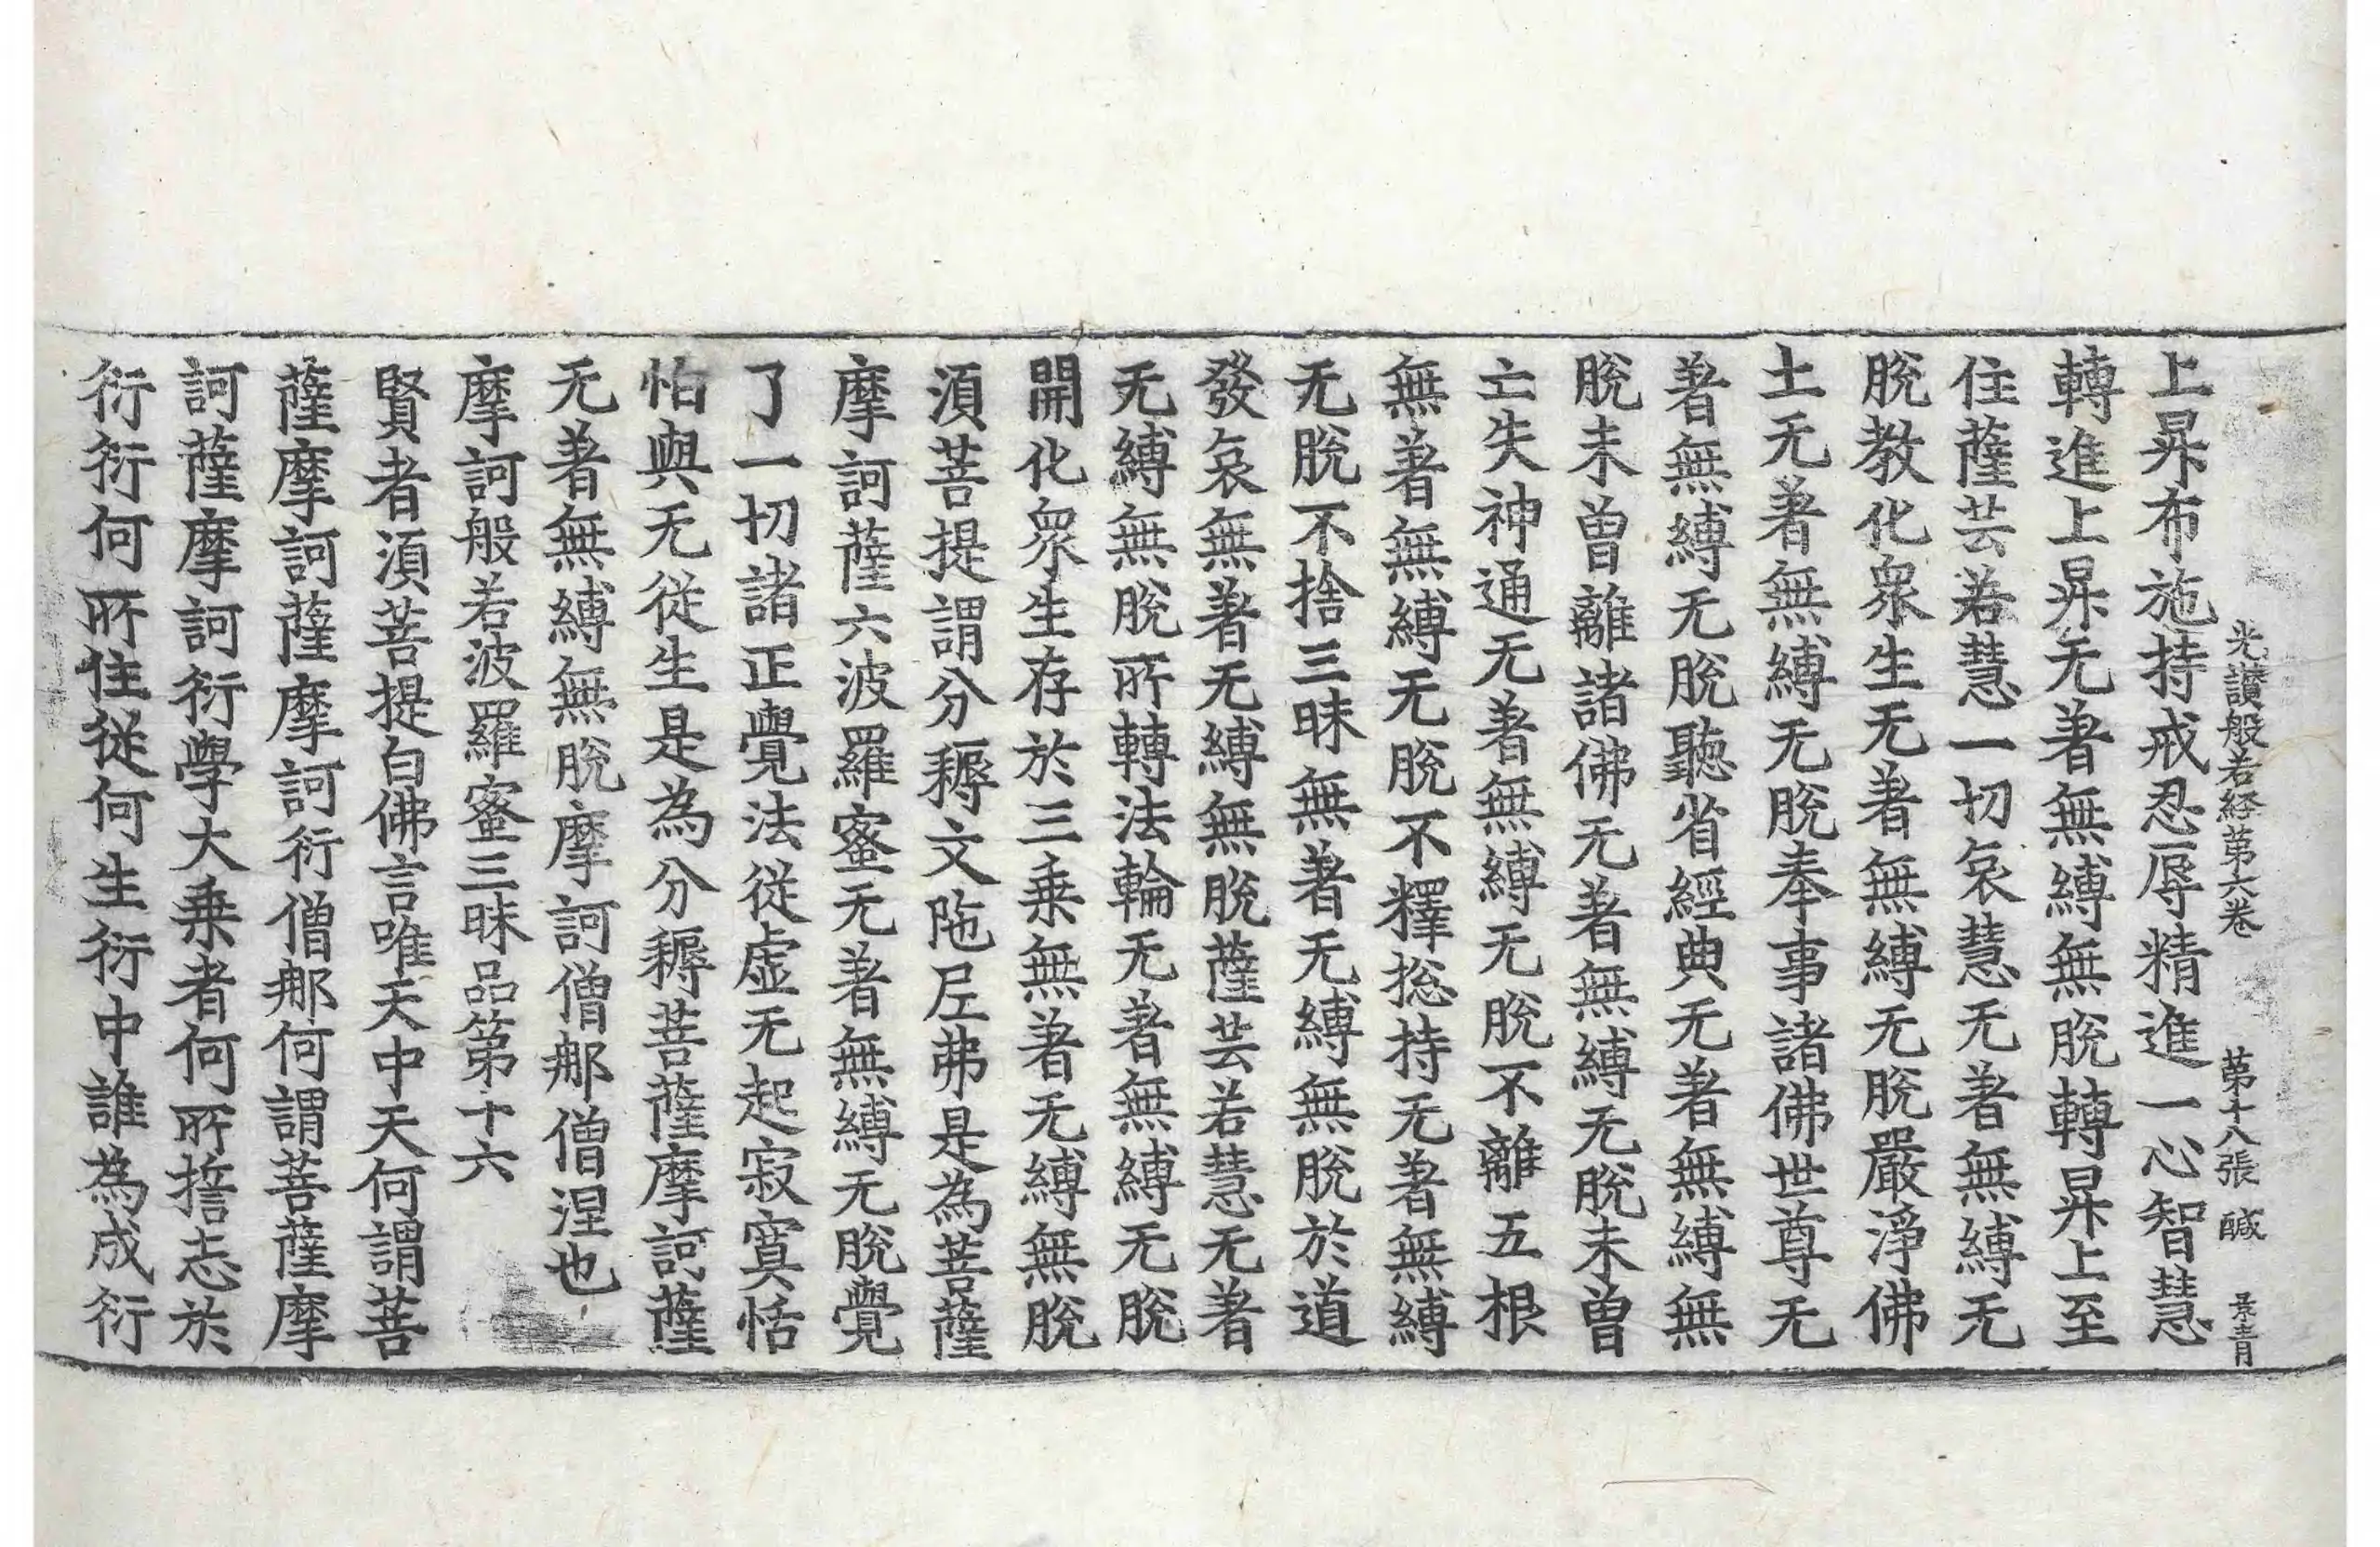 光讃般若経苐六卷 苐十八張 醎
上昇布施持戒忍辱精進一心智慧
轉進上昇无著無縛無脫轉昇上至
住薩芸若慧一切哀慧无著無縛无
脫教化衆生无著無縛无脫嚴淨佛
土无著無縛无脫奉事諸佛世尊无
著無縛无脫聽省經典无著無縛無
脫未曾離諸佛无著無縛无脫未曾
亡失神通无著無縛无脫不離五根
無著無縛无脫不釋揔持无著無縛
无脫不捨三昧無著无縛無脫於道
發哀無著无縛無脫薩芸若慧无著
无縛無脫所轉法輪无著無縛无脫
開化衆生存於三乗無著无縛無脫
湏菩提謂分耨文陁尼弗是為菩薩
摩訶薩六波羅蜜无著無縛无脫覺
了一切諸正覺法從虚无起寂寞恬
怕與无從生是為分耨菩薩摩訶薩
无著無縛無脫摩訶僧那僧涅也
摩訶般若波羅蜜三昧品第十六
賢者湏菩提白佛言唯天中天何謂菩
薩摩訶薩摩訶衍僧那何謂菩薩摩
訶薩摩訶衍學大乗者何所誓志於
衍衍何所住從何生衍中誰為成衍